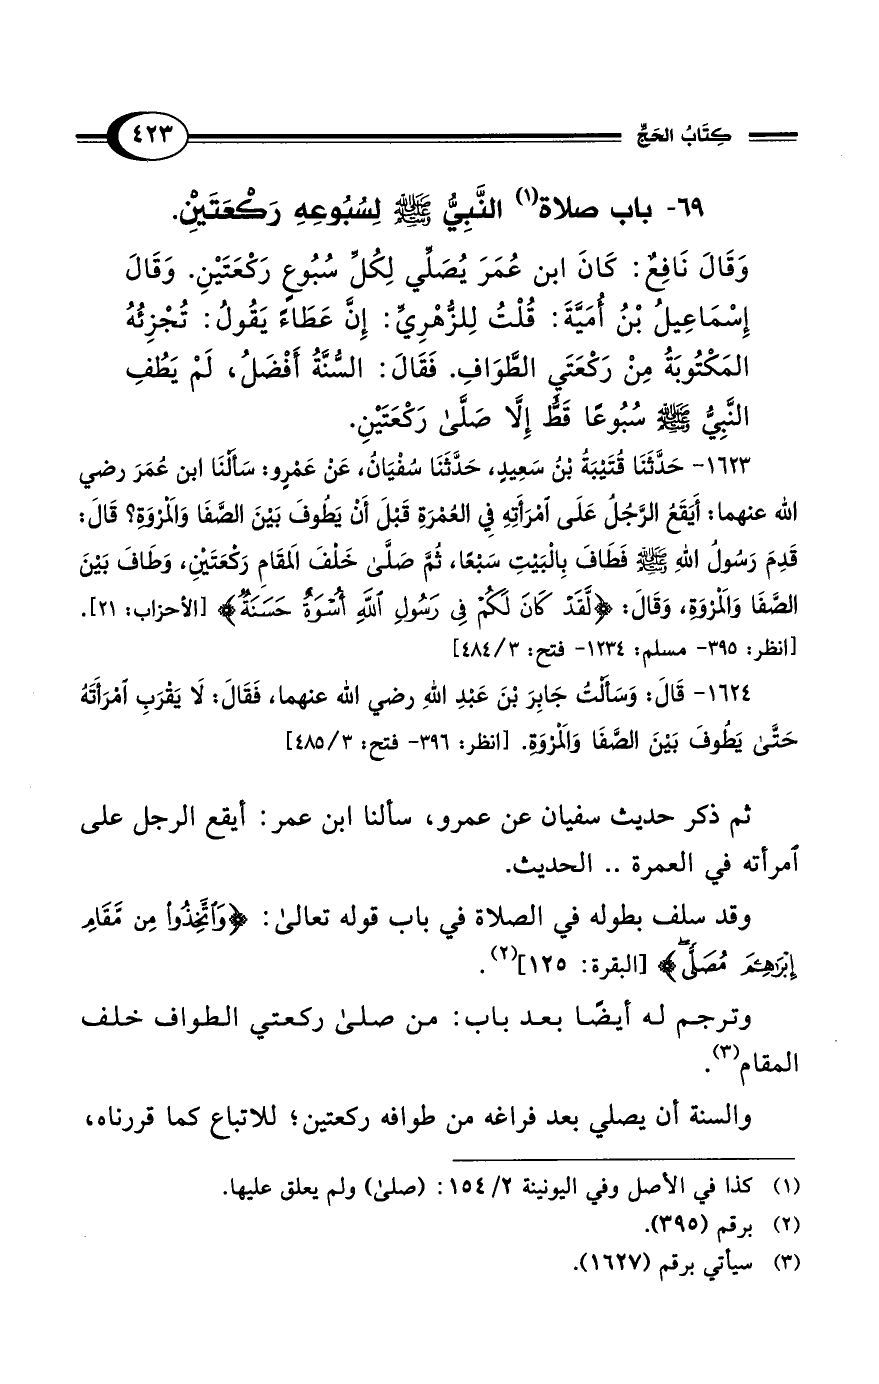 كِتَابُ الحَجِّ ٤٢٣
٦٩- باب صلاة(١) النَّبِيُّ ﷺ لِسُبُوعِهِ رَكْعَتَيْنِ.
وَقَالَ نَافِعٌ: كَانَ ابن عُمَرَ يُصَلِّي لِكُلِّ سُبُوعٍ رَكْعَتَيْنِ. وَقَالَ
إِسْمَاعِيلُ بْنُ أُمَيَّةَ: قُلْتُ لِلزُّهْرِيِّ: إِنَّ عَطَاءً يَقُولُ: تُجْزِئُهُ
المَكْتُوبَةُ مِنْ رَكْعَتَيِ الطَّوَافِ. فَقَالَ: السُّنَّةُ أَفْضَلُ، لَمْ يَطُفِ
النَّبِيُّ ﷺ سُبُوعًا قَطُّ إِلَّا صَلَّىٰ رَكْعَتَيْنِ.
١٦٢٣- حَدَّثَنَا قُتَيْبَةُ بْنُ سَعِيدٍ، حَدَّثَنَا سُفْيَانُ، عَنْ عَمْرٍو: سَأَلْنَا ابن عُمَرَ رضي
الله عنهما: أَيَقَعُ الرَّجُلُ عَلَى ٱمْرَأَتِهِ فِي العُمْرَةِ قَبْلَ أَنْ يَطُوفَ بَيْنَ الصَّفَا وَالْمَرْوَةِ؟ قَالَ:
قَدِمَ رَسُولُ اللهِ ﷺ فَطَافَ بِالْبَيْتِ سَبْعًا، ثُمَّ صَلَّىٰ خَلْفَ المَقَامِ رَكْعَتَيْنِ، وَطَافَ بَيْنَ
الصَّفَا وَالْمَرْوَةِ، وَقَالَ: ﴿لَّقَدْ كَانَ لَكُمْ فِى رَسُولِ ٱللَّهِ أُسْوَةٌ حَسَنَةٌ﴾ [الأحزاب: ٢١].
[انظر: ٣٩٥- مسلم: ١٢٣٤- فتح: ٣/ ٤٨٤]
١٦٢٤- قَالَ: وَسَأَلْتُ جَابِرَ بْنَ عَبْدِ اللهِ رضي الله عنهما، فَقَالَ: لَا يَقْرَبِ ٱمْرَأَتَهُ
حَتَّىٰ يَطُوفَ بَيْنَ الصَّفَا وَالْمَرْوَةِ. [انظر: ٣٩٦- فتح: ٣/ ٤٨٥]
ثم ذكر حديث سفيان عن عمرو، سألنا ابن عمر: أيقع الرجل على
ٱمرأته في العمرة .. الحديث.
وقد سلف بطوله في الصلاة في باب قوله تعالىٰ: ﴿وَٱتَّخِذُوا۟ مِن مَّقَامِ
إِبْرَٰهِـۧمَ مُصَلًّى﴾ [البقرة: ١٢٥](٢).
وترجم له أيضًا بعد باب: من صلىٰ ركعتي الطواف خلف
المقام(٣).
والسنة أن يصلي بعد فراغه من طوافه ركعتين؛ للاتباع كما قررناه،
(١) كذا في الأصل وفي اليونينة ٢/ ١٥٤: (صلىٰ) ولم يعلق عليها.
(٢) برقم (٣٩٥).
(٣) سيأتي برقم (١٦٢٧).